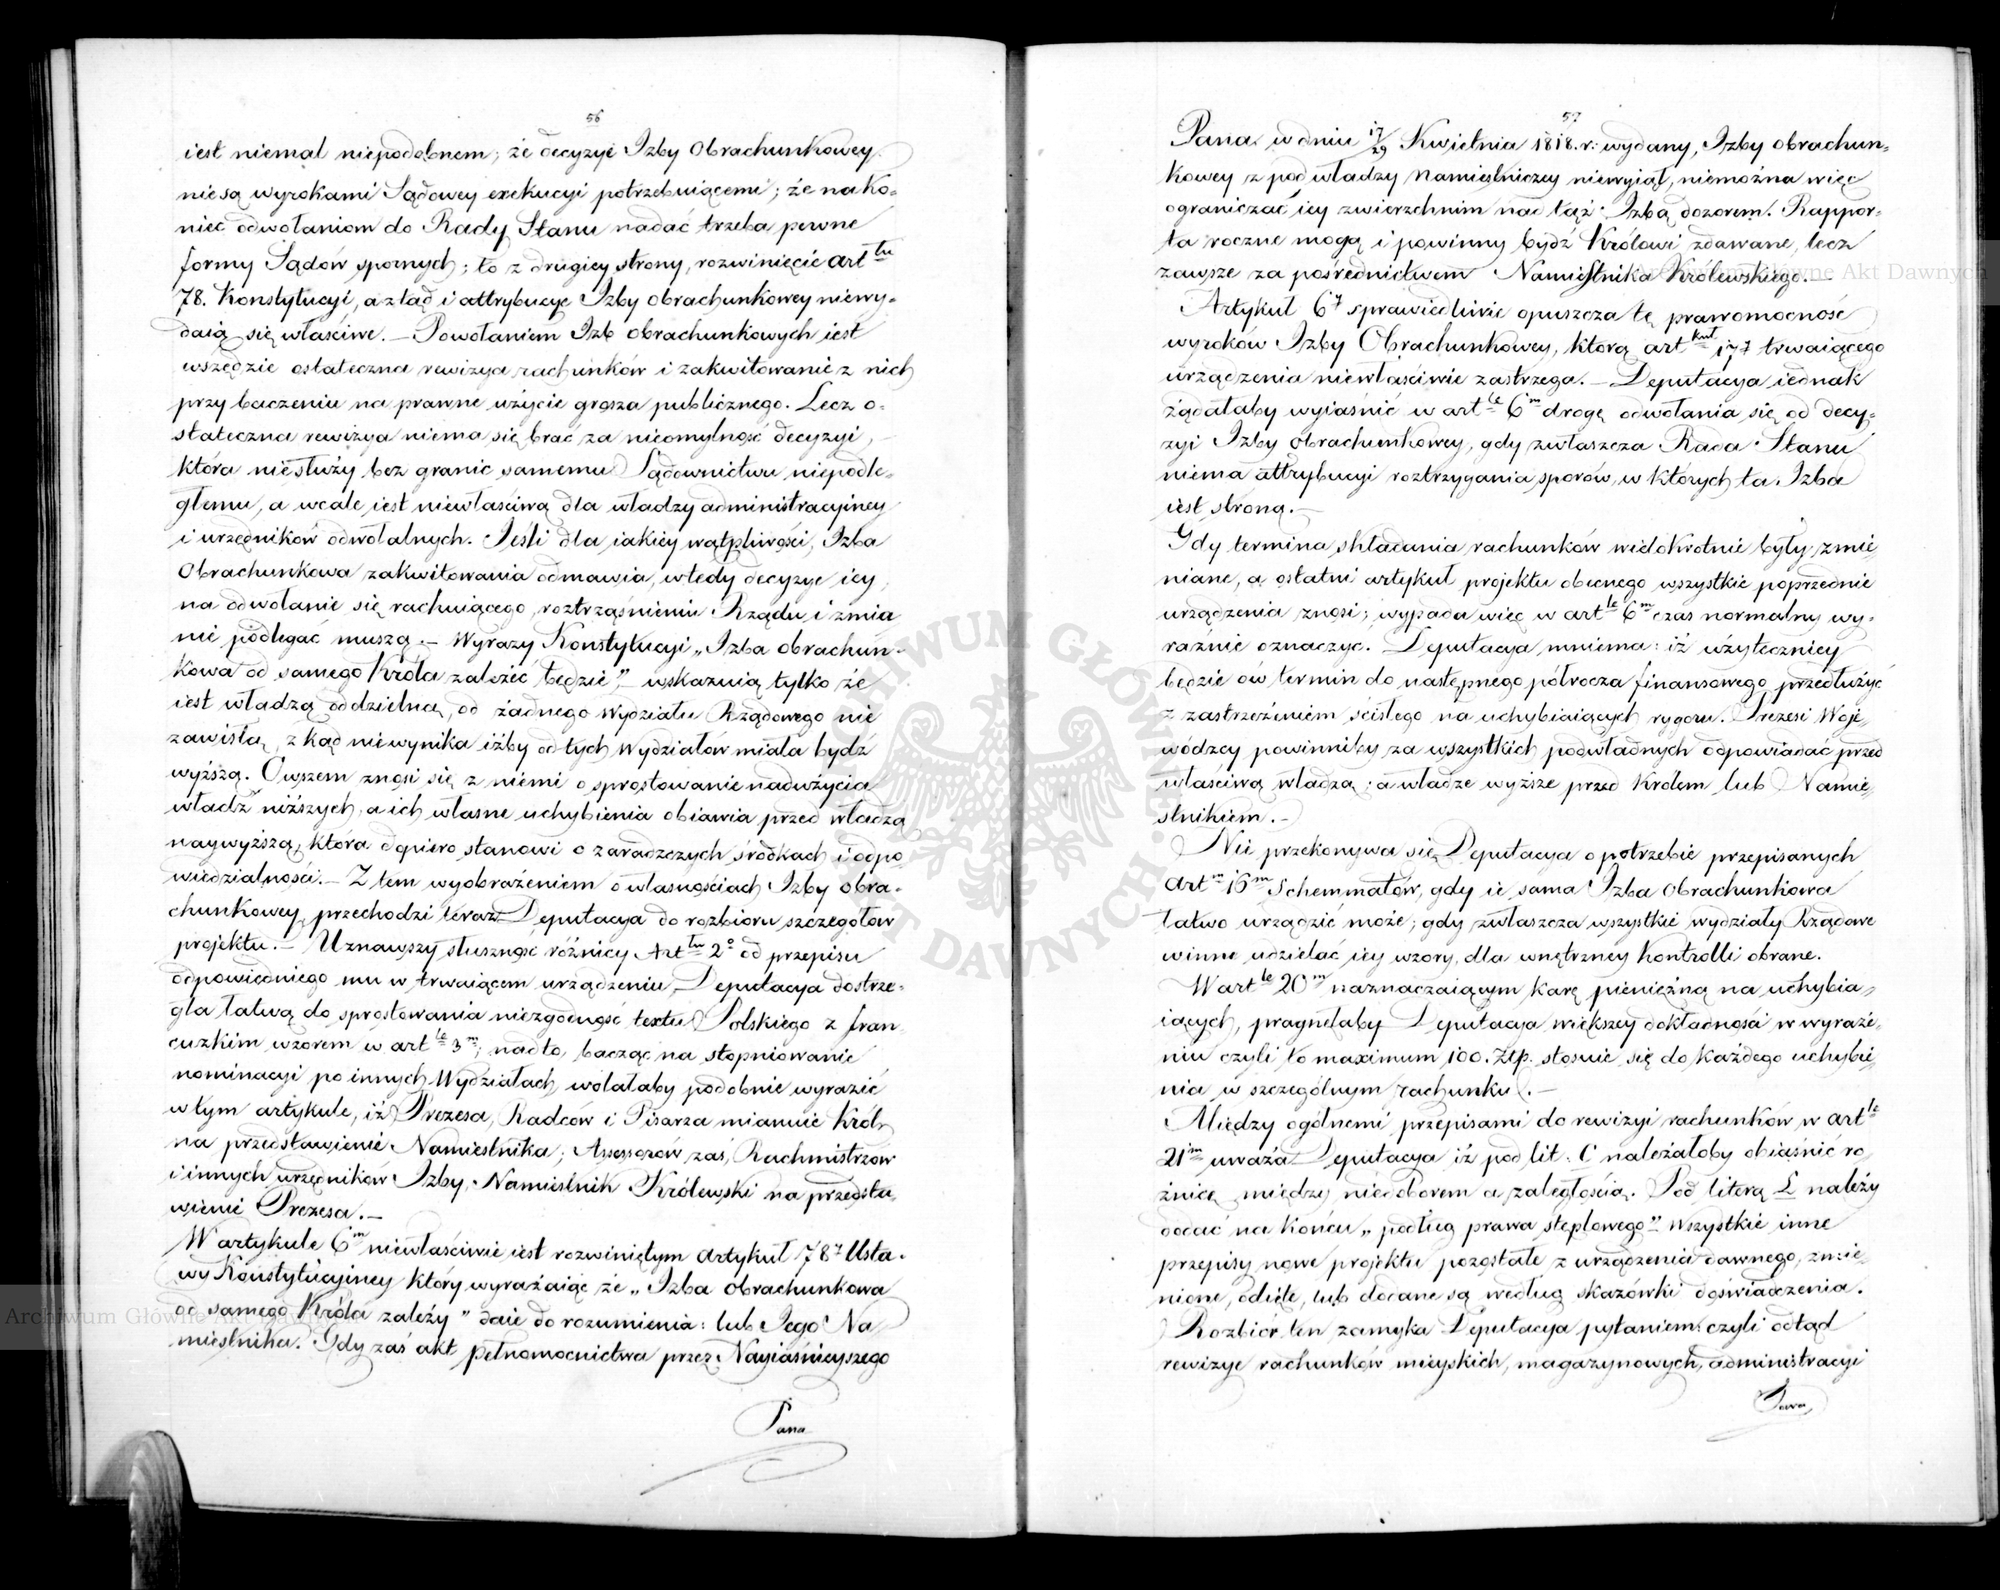 56
iest niemal niepodobnem; że decyzye Izby Obrachunkowey
nie są wyrokami Sądowey exekucyi potrzebuiącemi; że na ko=
niec odwołaniom do Rady Stanu nadać trzeba pewne
formy Sądów spornych; to z drugiey strony, rozwinięcie art tu
78. Konstytucyi, a ztąd i attrybucye Izby obrachunkowey niewy=
daią się właściwe. — Powołaniem Izb obrachunkowych iest
wszędzie ostateczna rewizya rachunków i zakwitowanie z nich
przy baczeniu na prawne użycie grosza publicznego. Lecz o=
stateczna rewizya niema się brać za nieomylność decyzyi,
która nie służy bez granic samemu Sądownictwu niepodle=
głemu, a wcale iest niewłaściwą dla władzy administracyiney
i urzędników odwołalnych. Jeśli dla iakiey wątpliwości, Izba
Obrachunkowa zakwitowania odmawia, wtedy decyzye iey,
na odwołanie się rachuiącego, roztrząśnieniu Rządu i zmia
nie podlegać muszą. — Wyrazy Konstytucyi „Izba obrachun=
kowa od samego Króla zależeć będzie” — wskazuią tylko że
iest władzą oddzielną, od żadnego Wydziału Rządowego nie
zawisłą, z kąd niewynika iżby od tych Wydziałów miała bydź
wyższą. Owszem znosi się z niemi o sprostowanie nadużycia
władz niższych, a ich własne uchybienia obiawia przed władzą
naywyższą, która dopiero stanowi o zaradczych środkach i odpo
wiedzialności. — Z tem wyobrażeniem o własnościach Izby obra=
chunkowey, przechodzi teraz Deputacya do rozbioru szczegółów
projektu. — Uznawszy słuszność różnicy Art tu 2° od przepisu
odpowiedniego mu w trwaiącem urządzeniu, Deputacya dostrze=
gła łatwą do sprostowania niezgodność textu Polskiego z fran
cuzkim wzorem w art le 3 m; nadto, bacząc na stopniowanie
nominacyi po innych Wydziałach, wolałaby podobnie wyrazić
w tym artykule, iż Prezesa, Radców i Pisarza mianuie Król,
na przedstawienie Namiestnika; Assessorów zaś, Rachmistrzów
i innych urzędników Izby, Namiestnik Królewski na przedsta,
wienie Prezesa. —
W artykule 6 m niewłaściwie iest rozwiniętym artykuł 78 y Usta=
wy Konstytucyiney który wyrażaiąc że „Izba Obrachunkowa
od samego Króla zależy” daie do rozumienia: lub Jego Na
miestnika. Gdy zaś akt pełnomocnictwa przez Nayiaśnieyszego
Pana
57
Pana w dniu 17/29 Kwietnia 1818. r: wydany, Izby obrachun=
kowey z pod władzy Namiestniczey niewyiął, niemożna więc
ograniczać iey zwierzchnim nad tąż Izbą dozorem. Rappor=
ta roczne mogą i powinny bydź Królowi zdawane, lecz
zawsze za pośrednictwem Namiestnika Królewskiego. —
Artykuł 6 y sprawiedliwie opuszcza tę prawomocność
wyroków Izby Obrachunkowey, którą art kuł 17 y trwaiącego
urządzenia niewłaściwie zastrzega. — Deputacya iednak
żądałaby wyiaśnić w art le 6 m drogę odwołania się od decy=
zyi Izby obrachunkowey, gdy zwłaszcza Rada Stanu
niema attrybucyi roztrzygania sporów, w których ta Izba
iest stroną. —
Gdy termina składania rachunków wielokrotnie były zmie
niane, a ostatni artykuł projektu obecnego wszystkie poprzednie
urządzenia znosi; wypada więc w art le 6 m czas normalny wy=
raźnie oznaczyć. Deputacya mniema: iż użyteczniey
będzie ów termin do następnego półrocza finansowego przedłużyć
z zastrzeżeniem ścisłego na uchybiaiących rygoru. Prezesi Woje,
wódzcy powinniby za wszystkich podwładnych odpowiadać przed
właściwą władzą; a władze wyższe przed Królem lub Namie=
stnikiem. —
Nie przekonywa się Deputacya o potrzebie przepisanych
Art m 16 m Schemmatów, gdy ie sama Izba Obrachunkowa
łatwo urządzić może; gdy zwłaszcza wszystkie wydziały Rządowe
winne udzielać iey wzory, dla wnętrzney Kontrolli obrane.
W art le 20 m naznaczaiącym karę pieniężną na uchybia=
iących, pragnęłaby Deputacya większey dokładności w wyraże=
niu czyli to maximum 100. Złp. stosuie się do każdego uchybie,
nia w szczególnym rachunku. —
Między ogólnemi przepisami do rewizyi rachunków w art le
21 m uważa Deputacya iż pod lit. C należałoby obiaśnić ro,
żnicę między niedoborem a zaległością. Pod literą L należy
dodać na końcu „podług prawa stęplowego” Wszystkie inne
przepisy nowe projektu pozostałe z urządzenia dawnego, zmie=
nione, odięte, lub dodane są według skazówki doświadczenia.
Rozbiór ten zamyka Deputacya pytaniem: czyli odtąd
rewizye rachunków mieyskich, magazynowych, administracyi
Archiwum Główne Akt Dawnych
Archiwum Główne Akt Dawnych
ARCHIWUM GŁÓWNE AKT DAWNYCH